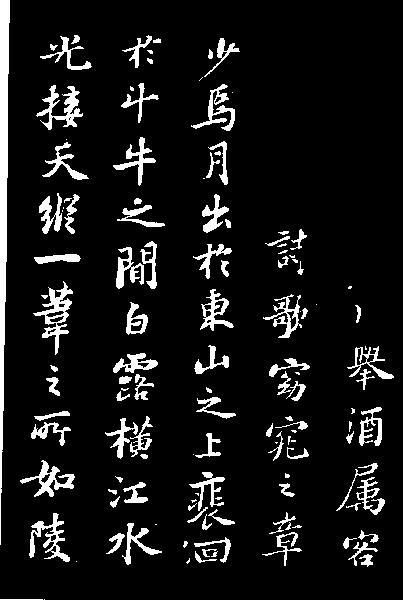 舉酒属客
詩歌窈窕之章
少焉月出於東山之上裵洄
於斗牛之間白露橫江水
光接天縱一葦之所如陵